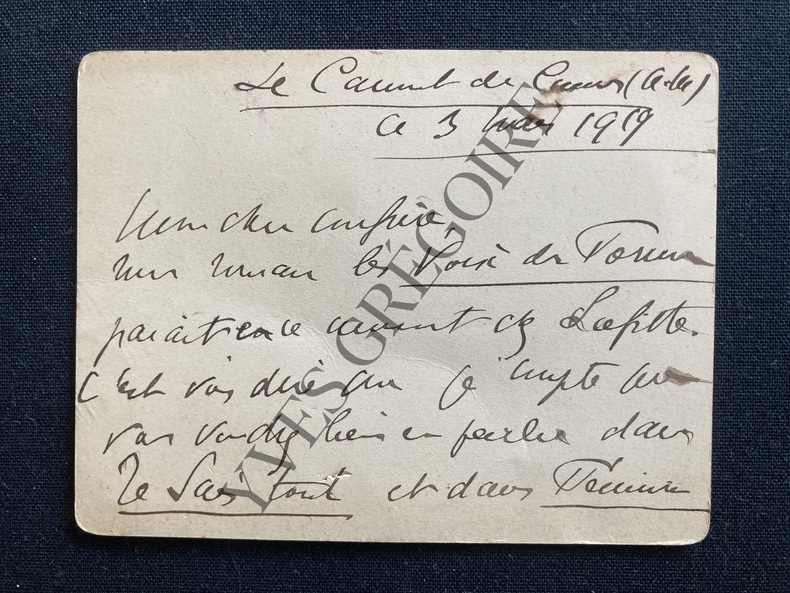 Le Cannet de Cannes (A.M)
ce 3 mars 1919
Mon cher confrère,
mon roman les Voix du Forum
paraît en ce moment chez Lafitte.
C'est vous dire que je compte que
vous voudrez bien en parler dans
Je Sais tout et dans Fémina
YVES GRÉGOIRE